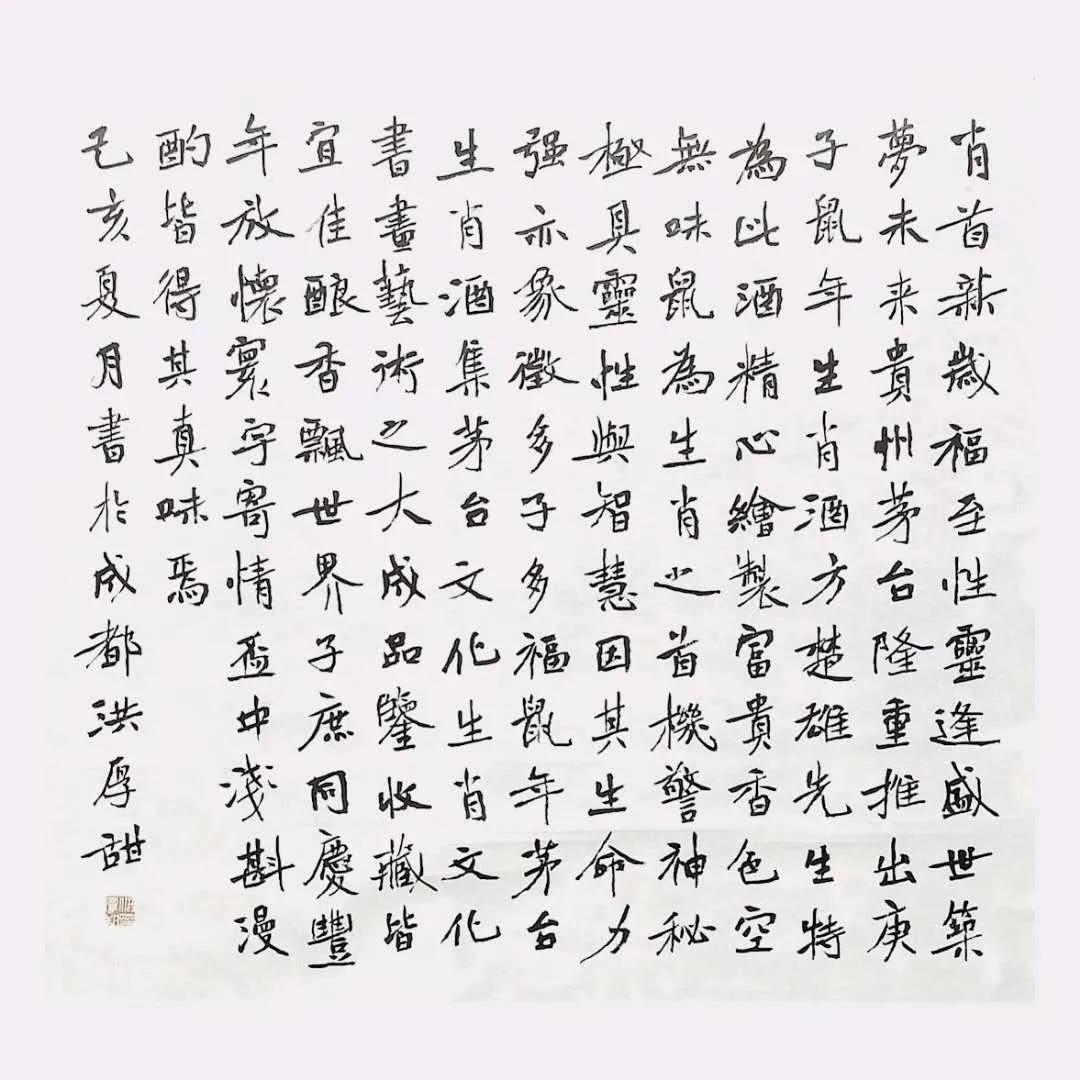 肖首新歲福至性靈逢盛世築
夢未来貴州茅台隆重推出庚
子鼠年生肖酒方楚雄先生特
為此酒精心繪製富貴香色空
無味鼠為生肖之首機警神秘
極具靈性與智慧因其生命力
强亦象徵多子多福鼠年茅台
生肖酒集茅台文化生肖文化
書畫藝術之大成品鑒收藏皆
宜佳釀香飄世界子庶同慶豐
年放懷寰宇寄情盃中淺斟漫
酌皆得其真味焉
己亥夏月書於成都洪厚甜